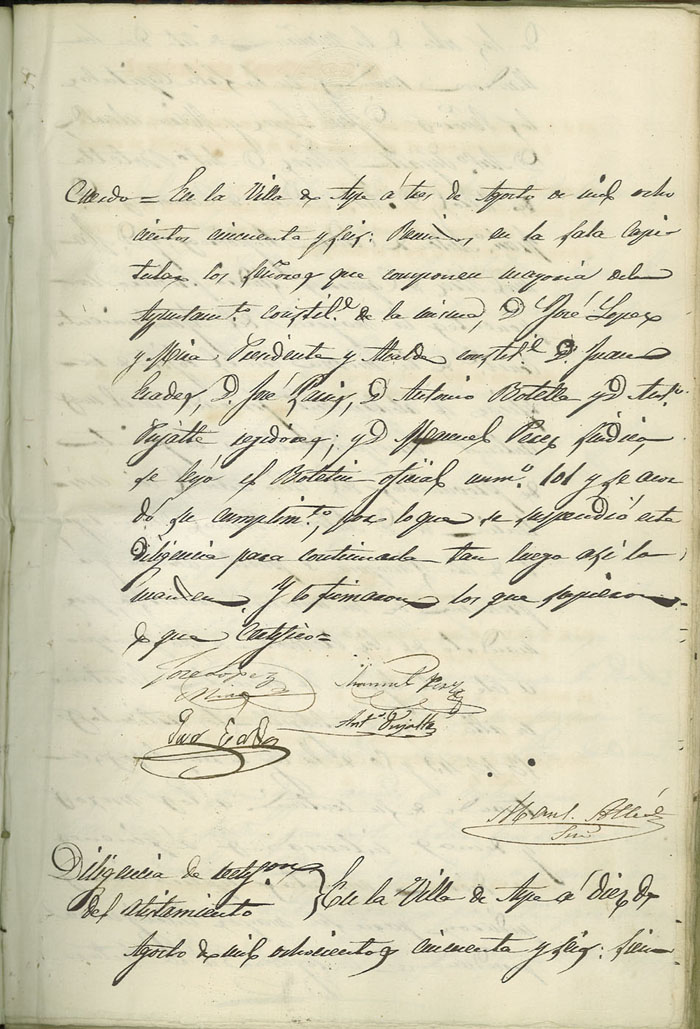 Cuerdo = En la Villa de Aspe á tres de Agosto de mil ocho
cientos cincuenta y seis: Reunidos en la sala capi-
tular los Señores que componen mayoria del
Ayuntam.to constit.l de la misma, D. José Lopez
y Mira Presidente y Alcalde constit.l D. Juan
D. José D. Antonio Botella y D. Ant.o
Pujalte regidores; y D. Manuel Perez sindico,
se leyó el Boletin oficial num.o 101 y se acor
dó su cumplim.to, por lo que se suspendió esta
diligencia para continuarla tan luego asi lo
manden. Y lo firmaron los que supieron
de que Certifico =
Jose Lopez
Mira
Manuel Perez
Ant.o Pujalte
Man.l
Srio
Diligencia de
del alistamiento
En la Villa de Aspe á diez de
Agosto de mil ochocientos cincuenta y seis: sien-